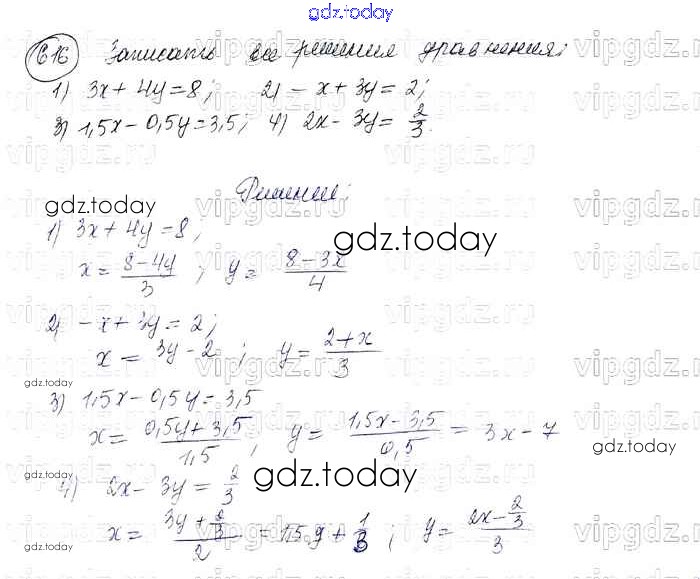 gdz.today
616 Записать все решения уравнения:
1) 3x + 4y = 8; 2) - x + 3y = 2;
3) 1,5x - 0,5y = 3,5; 4) 2x - 3y = 2/3.
Решение:
gdz.today
1) 3x + 4y = 8;
gdz.today
x = (8 - 4y)/3 ; y = (8 - 3x)/4
2) - x + 3y = 2;
x = 3y - 2 ; y = (2 + x)/3
gdz.today
3) 1,5x - 0,5y = 3,5
x = (0,5y + 3,5)/1,5 , y = (1,5x - 3,5)/0,5 = 3x - 7
gdz.today
4) 2x - 3y = 2/3
gdz.today
x = (3y + 2/3)/2 = 1,5y + 1/3 ; y = (2x - 2/3)/3
gdz.today
vipgdz.ru